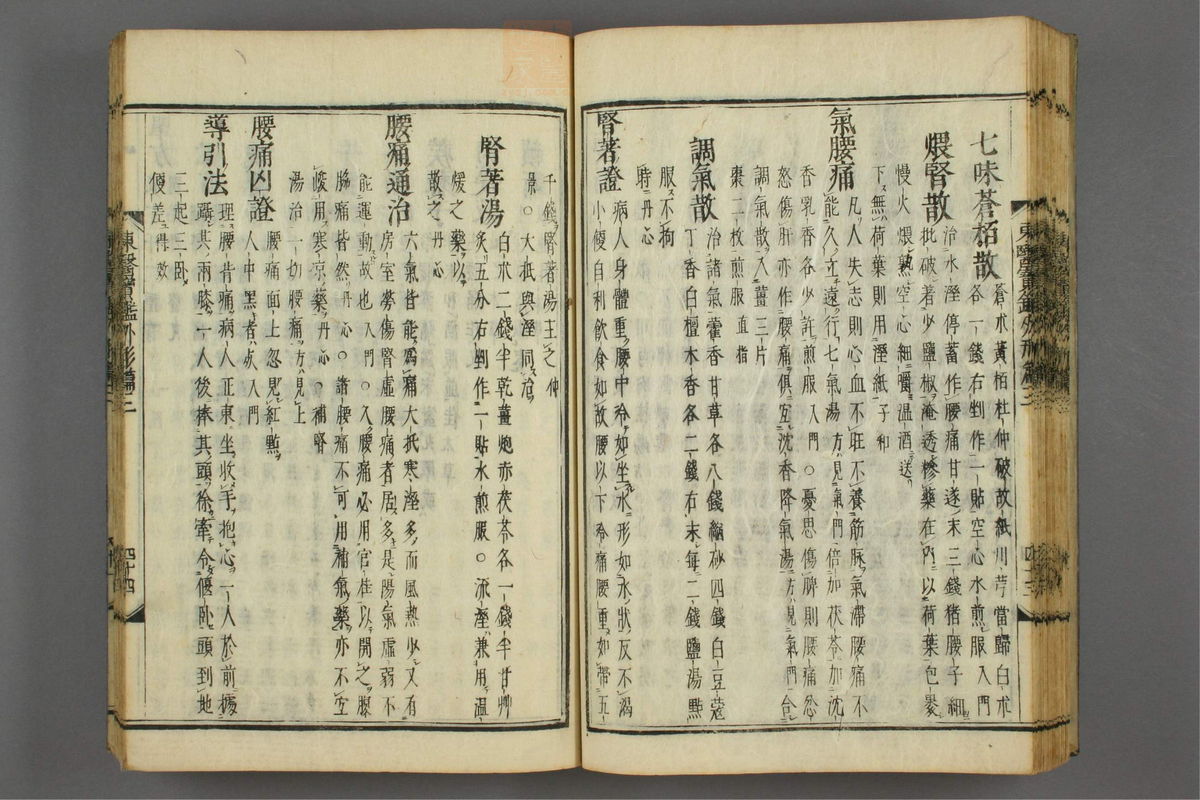 七味蒼栢散 蒼朮黃栢杜仲破故紙川芎當歸白朮
各一錢右剉作一貼空心水煎服入門
煨腎散 治水溼停蓄作腰痛甘遂末三錢猪腰子細
批破著少鹽椒淹透糝藥在內以荷葉包裹
慢火煨熟空心細嚼溫酒送
下無荷葉則用溼紙子和
氣腰痛 凡人失志則心血不旺不養筋脉氣滯腰痛不
能久立遠行七氣湯方見氣門倍加茯苓加沈
香乳香各少許煎服入門○憂思傷脾則腰痛忿
怒傷肝亦作腰痛俱宜沈香降氣湯方見氣門合
調氣散入薑三片
棗二枚煎服直指
調氣散 治諸氣藿香甘草各八錢縮砂四錢白豆蔻
丁香白檀木香各二錢右末每二錢鹽湯點
服不拘
時丹心
腎著證 病人身體重腰中冷如坐水形如水狀反不渴
小便自利飮食如故腰以下冷痛腰重如帶五
千錢腎著湯主之仲
景○大抵與溼同治
腎著湯 白朮二錢半乾薑炮赤茯苓各一錢半甘艸
炙五分右剉作一貼水煎服○流溼兼用溫
煖之藥以
散之丹心
腰痛通治 六氣皆能爲痛大抵寒溼多而風熱少又有
房室勞傷腎虛腰痛者居多是陽氣虛弱不
能運動故也入門○久腰痛必用官桂以開之腹
脇痛皆然丹心○諸腰痛不可用補氣藥亦不宜
峻用寒凉藥丹心○補腎
湯治一切腰痛方見上
腰痛凶證 腰痛面上忽見紅點
人中黑者死入門
導引法 理腰背痛病人正東坐收手抱心一人於前據
躡其兩膝一人後捧其頭徐牽令偃臥頭到地
三起三臥
便差得效
東醫寶鑑外形篇三
四十四